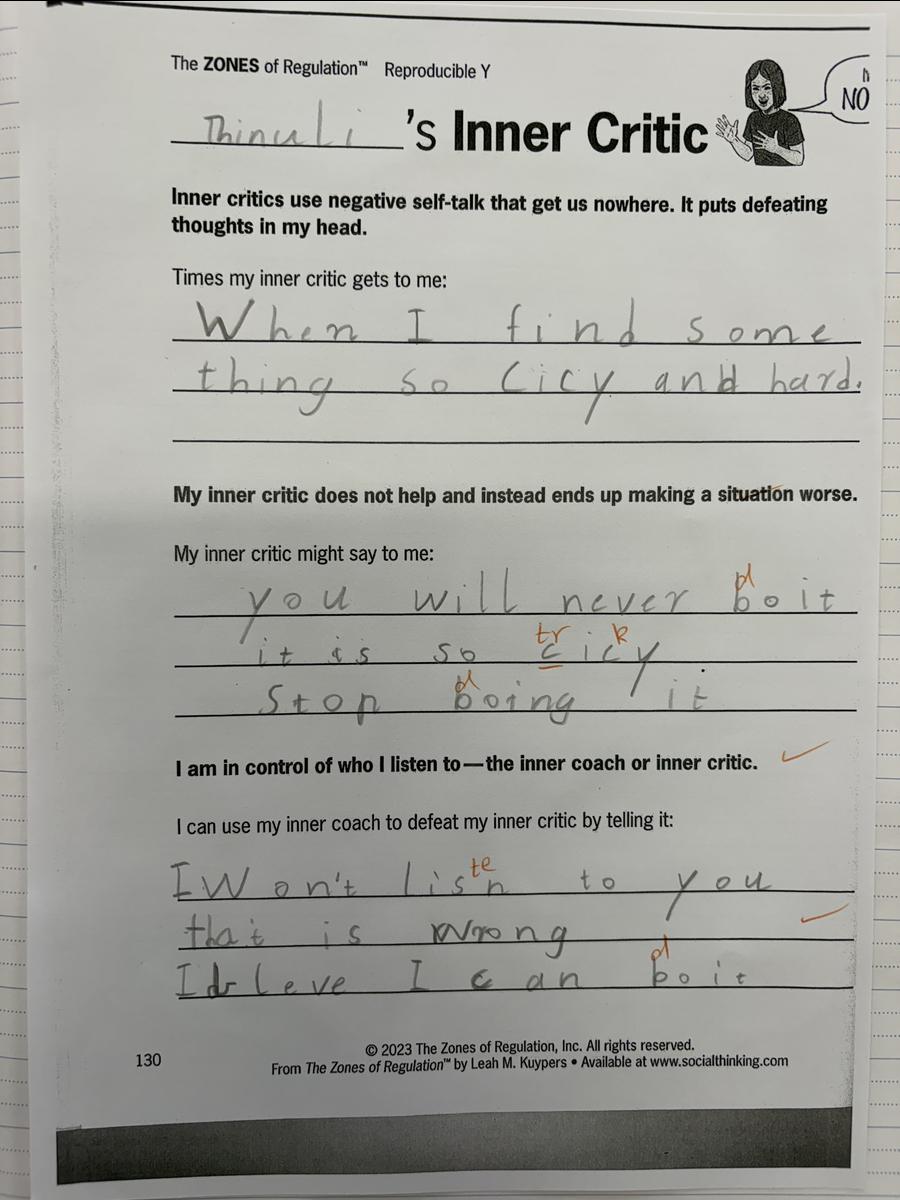 The ZONES of Regulation™ Reproducible Y
NO
Thinuli 's Inner Critic
Inner critics use negative self-talk that get us nowhere. It puts defeating
thoughts in my head.
Times my inner critic gets to me:
When I find some
thing so cicy and hard.
My inner critic does not help and instead ends up making a situation worse.
My inner critic might say to me:
d
you will never bo it
tr k
it is so cicy
d
Stop boing it
I am in control of who I listen to—the inner coach or inner critic.
I can use my inner coach to defeat my inner critic by telling it:
te
I Won't lisn to you
that is Wrong
d
I leve I can bo it
© 2023 The Zones of Regulation, Inc. All rights reserved.
130
From The Zones of Regulation™ by Leah M. Kuypers • Available at www.socialthinking.com